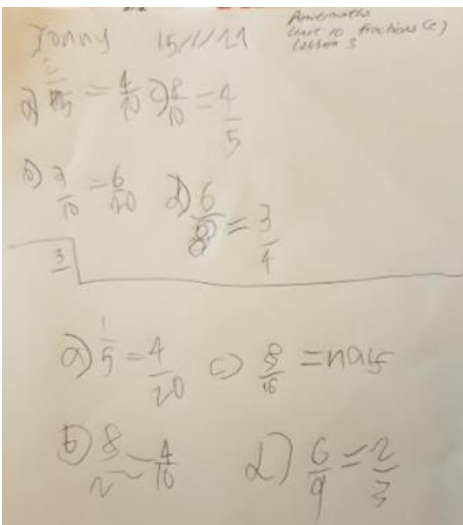 Jonny 15/1/21
Powermaths
Unit 10 fractions (2)
Lesson 3
a) 2/5 = 4/10 c) 8/10 = 4/5
b) 3/10 = 6/20 d) 6/8 = 3/4
3
a) 1/5 = 4/20 c) 8/16 = half
b) 8/ = 4/10 d) 6/9 = 2/3